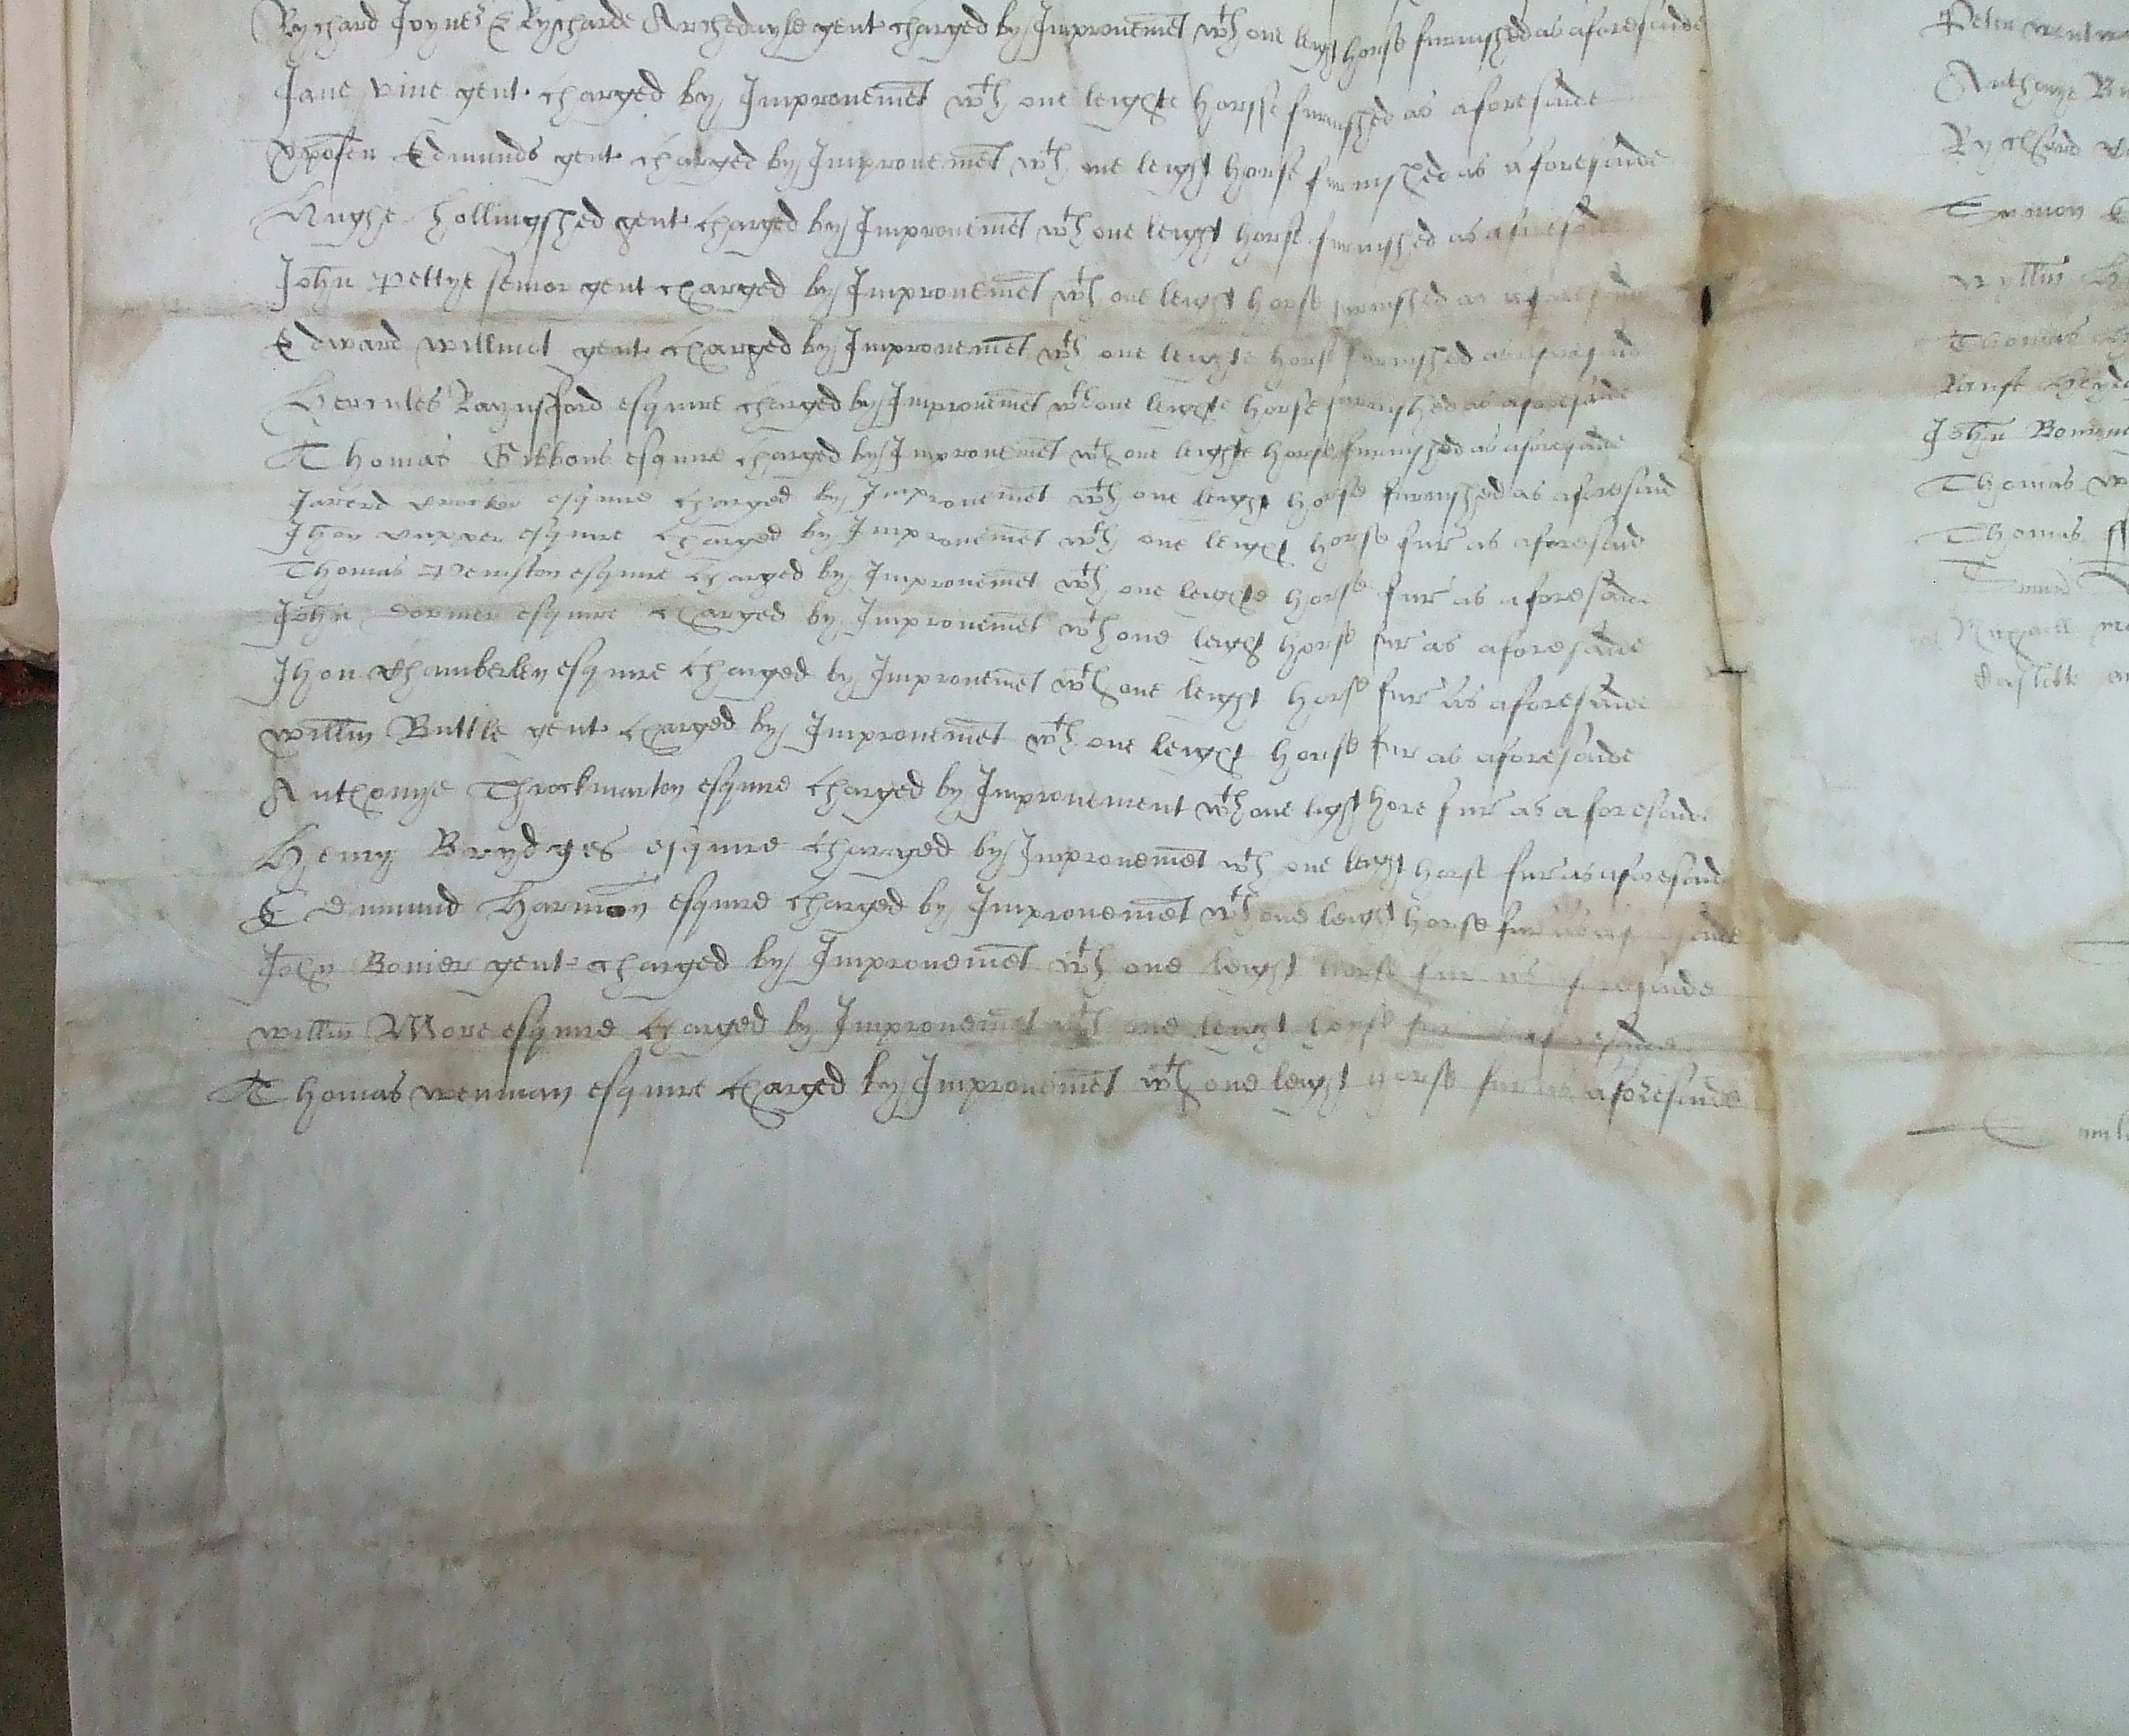 Rychard Joyner & Rycharde Archedayle gent charged by Improuemēt wth one leyght horse furnished as aforesaide
Jane vine gent charged by Improuemēt wth one leyghte horsse furnished as aforesaide
Edmunds gent charged by Improuemēt wth one leyght horse furnished as aforesaide
Hughe Hollingshed gent charged by Improuemēt wth one leyght horse furnished as aforesaide
John Pettye senior gent charged by Improuemēt wth one leyght horse furnished as aforesaide
Edward willmot gent charged by Improuemēt wth one leyghte horse furnished as aforesaide
Hercules Raynsford esquire charged by Improuemēt wth one leyghte horse furnished as aforesaide
Thomas Gibbons esquire charged by Improuemēt wth one leyghte horse furnished as aforesaide
esquire charged by Improuemēt wth one leyght horse furnished as aforesaid
Jhon esquire charged by Improuemēt wth one leyght horse fur as aforesaid
Thomas Penyston esquire charged by Improuemēt wth one leyghte horse fur as aforesaide
John dormer esquire charged by Improuemēt wth one leyght horse fur as aforesaide
Jhon Chamberlen esquire charged by Improuemēt wth one leyght horse fur as aforesaide
willm Buttle gent charged by Improuemēt wth one leyght horse fur as aforesaide
Anthonye Throckmarton esquire charged by Improuement wth one lyght hore fur as aforesaide
Henry Brydges esquire charged by Improuemēt wth one leyght horse fur as aforesaide
Edmund Harmon esquire charged by Improuemēt wth one leyght horse fur as aforesaide
John Bomer gent charged by Improuemēt wth one leyght horse fur as aforesaide
willm More esquire charged by Improuemēt wth one leyght horse fur as aforesaide
Thomas wenman esquire charged by Improuemēt wth one leyght horse fur as aforesaide
Peter
Anthonye
Rychard
willm
Thomas
John
Thomas
Thomas